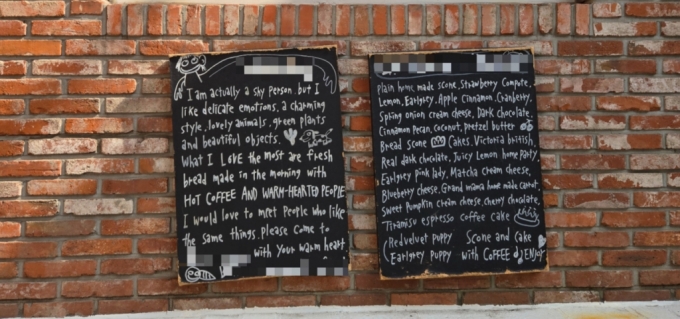 I am actually a shy person. but I
like delicate emotions, a charming
style, lovely animals, green plants
and beautiful objects.
What I Love the most are fresh
bread made in the morning with
HOT COFFEE AND WARM-HEARTED PEOPLE
I would love to meet People who like
the same things. Please come to
with your warm heart
plain home made scone, Strawberry Compute,
Lemon, Earlgrey, Apple Cinnamon, Cranberry,
Spring onion cream cheese, Dark chocolate,
Cinnamon Pecan, coconut, pretzel butter
Bread Scone Cakes, Victoria british,
Real dark chocolate, Juicy Lemon home Party,
Earlgrey Pink lady, Matcha cream cheese,
Blueberry cheese, Grand mama home made carrot,
Sweet Pumpkin cream cheese, cherry chocolate,
Tiramisu espresso coffee cake
(Redvelvet puppy Scone and cake
(Earlgrey puppy with COFFEE ENJOY